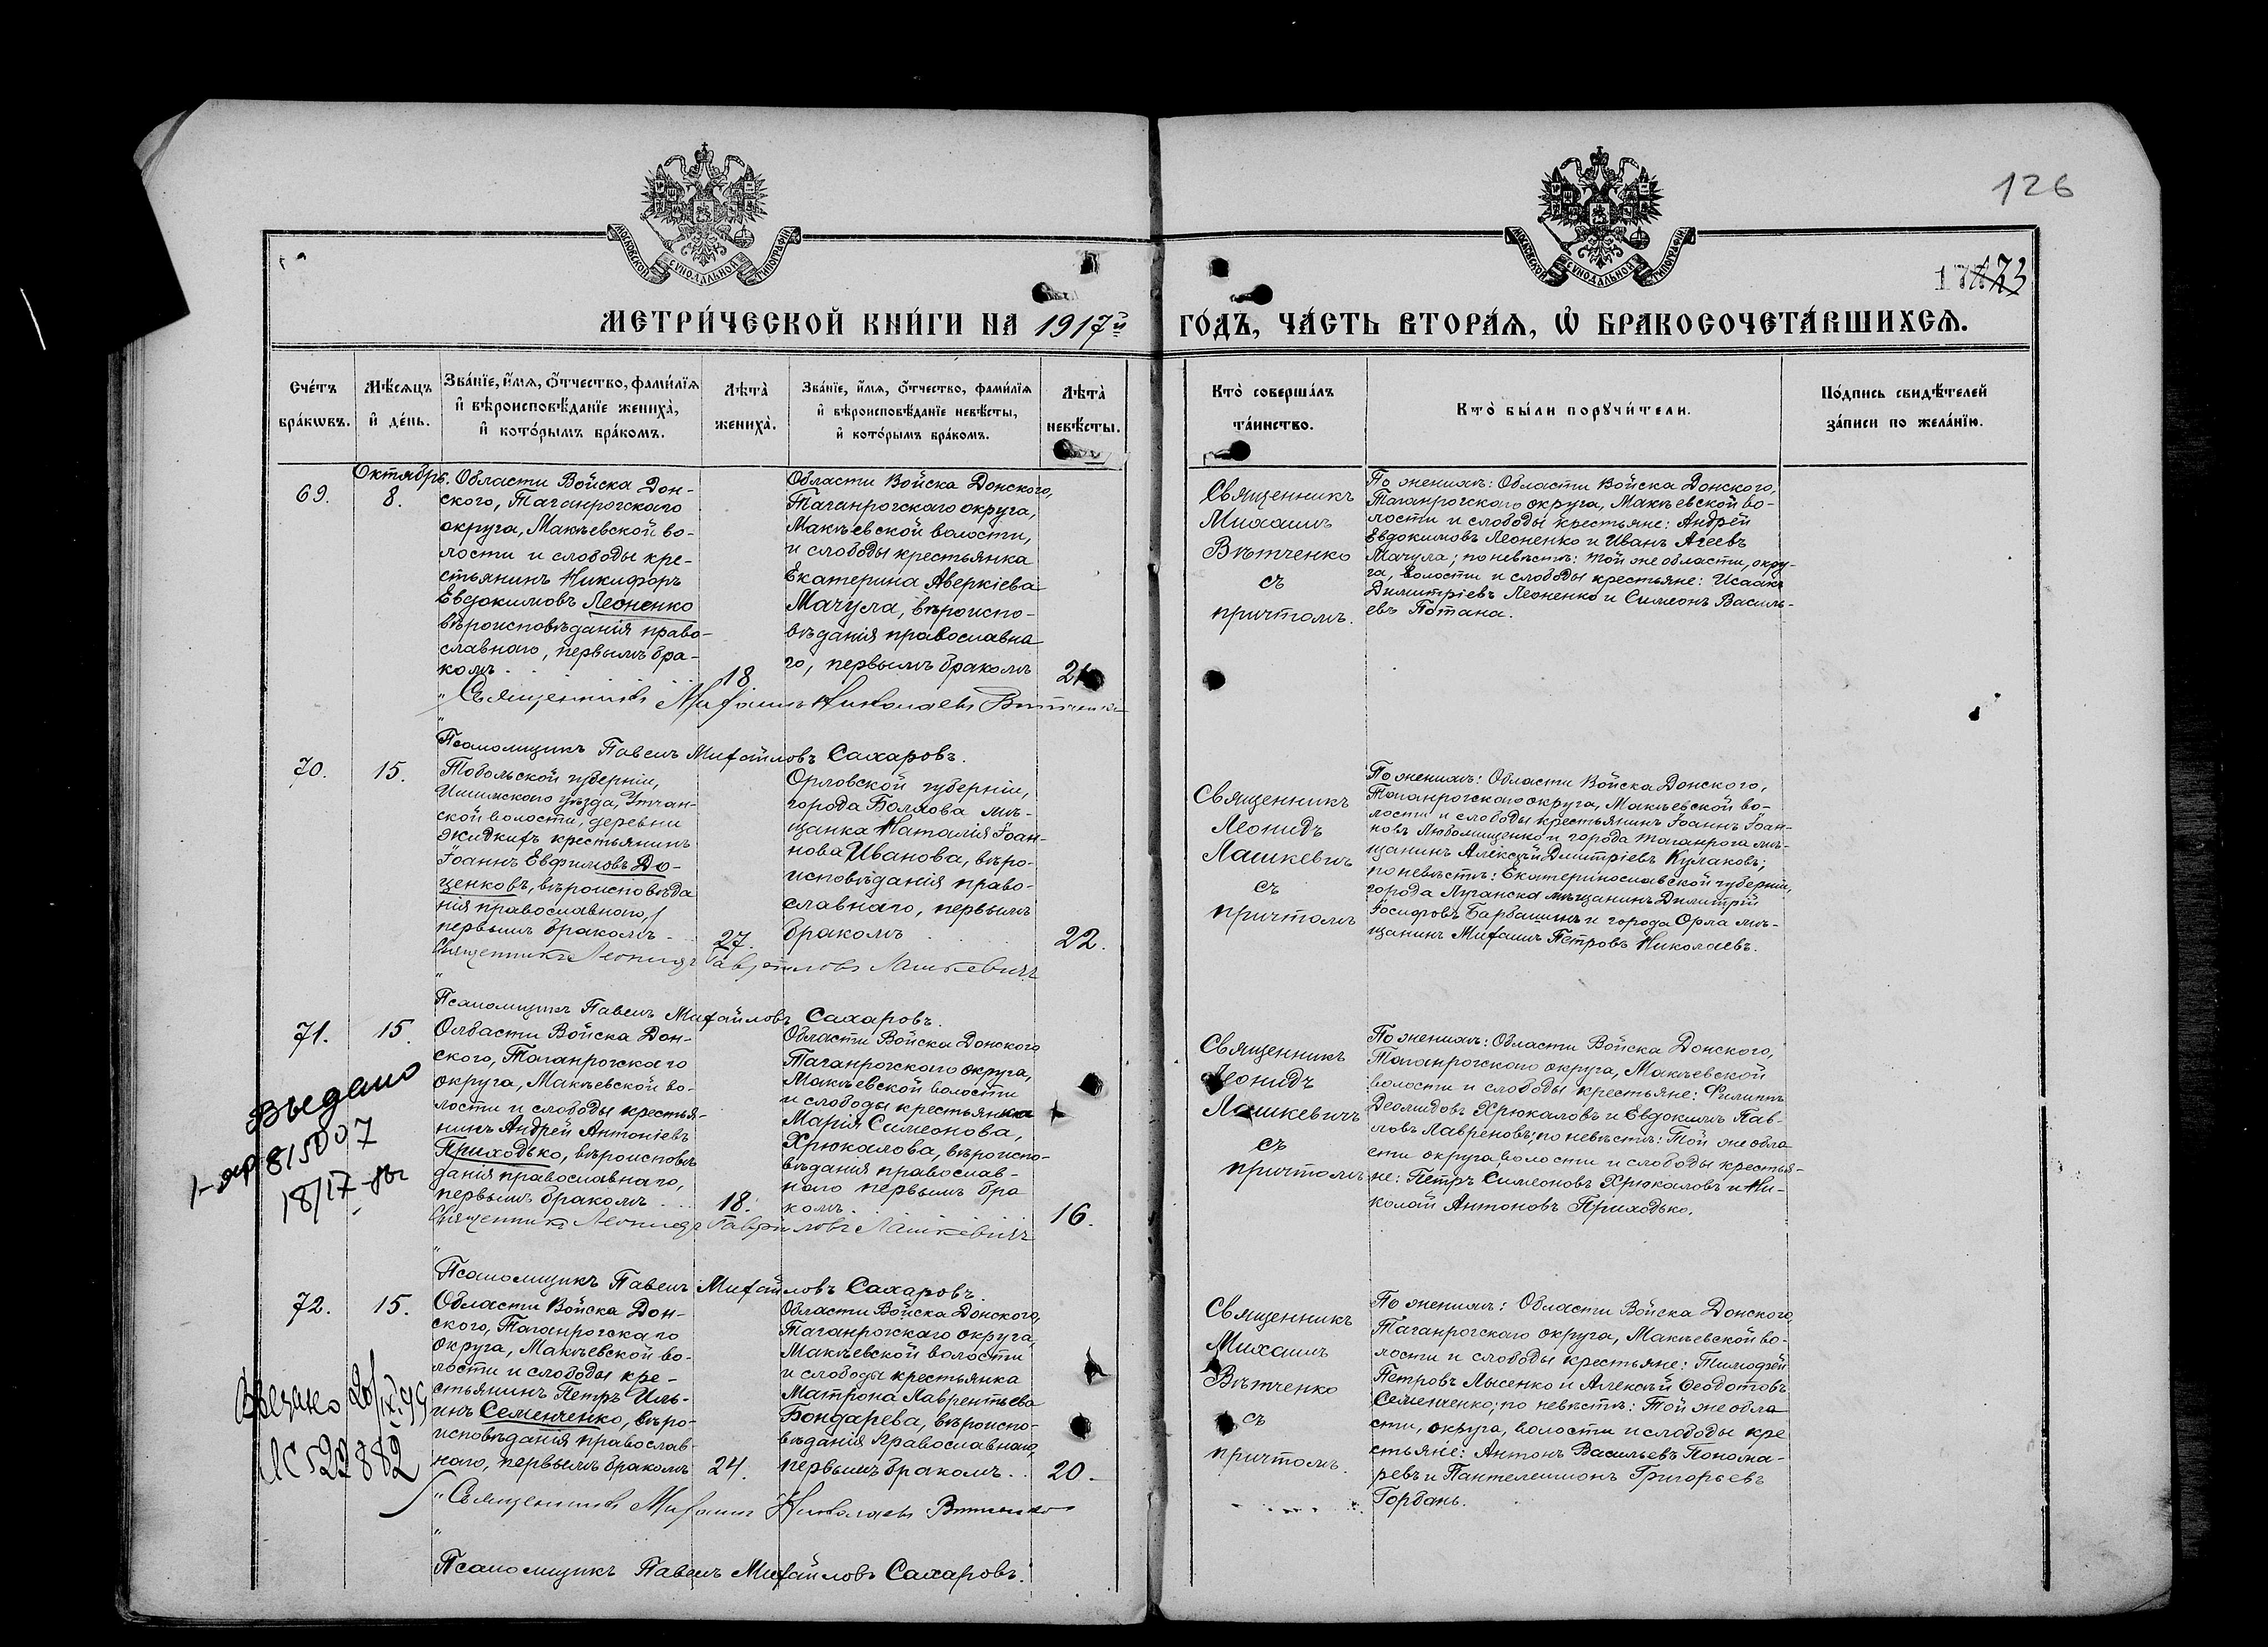 126
МОСКОВСКОЙ СѴНОДАЛЬНОЙ ТИПОГРАФІИ
МОСКОВСКОЙ СѴНОДАЛЬНОЙ ТИПОГРАФІИ
МЕТРИ́ЧЕСКОЙ КНИ́ГИ НА 1917й ГО́ДЪ, ЧА́СТЬ ВТОРА́Ѧ, Ѡ҆ БРАКОСОЧЕТА́ВШИХСѦ.
Сче́тъ бра́кѡвъ.
Мѣ́сѧцъ и҆ де́нь.
Зва́нїе, и҆́мѧ, ѻ҆́тчество, фами́лїѧ и҆ вѣроисповѣ́данїе жениха̀, и҆ кото́рымъ бра́комъ.
Лѣ́та жениха̀.
Зва́нїе, и҆́мѧ, ѻ҆́тчество, фами́лїѧ и҆ вѣроисповѣ́данїе невѣ́сты, и҆ кото́рымъ бра́комъ.
Лѣ́та невѣ́сты.
Кто̀ соверша́лъ та́инство.
Кто̀ бы́ли порꙋчи́тели.
По́дпись свидѣ́телей за́писи по жела́нїю.
69.
Октябрь.
8.
Области Войска Дон-
ского, Таганрогскаго
округа, Макѣевской во-
лости и слободы кре-
стьянинъ Никифоръ
Евдокимовъ Леоненко
вѣроисповѣданія право-
славнаго, первымъ бра-
комъ.
18
Области Войска Донского,
Таганрогскаго округа,
Макѣевской волости,
и слободы крестьянка
Екатерина Аверкіева
Мачула, вѣроиспо-
вѣданія православна
го, первымъ бракомъ
Священникъ
Михаилъ
Вѣтченко
съ
причтомъ.
По женихѣ: Области Войска Донского,
Таганрогскаго округа, Макѣевской во-
лости и слободы крестьяне: Андрей
Евдокимовъ Леоненко и Иванъ Агеевъ
Мачула; по невѣстѣ: той же области, окру-
га, волости и слободы крестьяне: Исаакъ
Димитріевъ Леоненко и Симеонъ Василь-
евъ Потана.
Священникъ Михаилъ Николаевъ Вѣтченко
Псаломщикъ Павелъ Михайловъ Сахаровъ.
70.
15.
Тобольской губерніи,
Ишимскаго уѣзда, Утчан-
ской волости, деревни
Жидкихъ крестьянинъ
Іоаннъ Евфимовъ До-
ценковъ, вѣроисповѣда
нія православнаго,
первымъ бракомъ
27.
Орловской губерніи,
города Болхова мѣ-
щанка Наталія Іоан-
нова Иванова, вѣро-
исповѣданія право-
славнаго, первымъ
бракомъ
22.
Священникъ
Леонидъ
Лашкевичъ
съ
причтомъ
По женихѣ: Области Войска Донского,
Таганрогскаго округа, Макѣевской во-
лости и слободы крестьянинъ Іоаннъ Іоан-
новъ Любомищенко и города Таганрога мѣ-
щанинъ Алексѣй Дмитріевъ Кулаковъ;
по невѣстѣ: Екатеринославской губерніи,
города Луганска мѣщанинъ Димитрій
Іосифовъ Барбашинъ и города Орла мѣ-
щанинъ Михаилъ Петровъ Николаевъ.
Священникъ Леонидъ Гавриловъ Лашкевичъ
Псаломщикъ Павелъ Михайловъ Сахаровъ.
71.
15.
Области Войска Дон-
ского, Таганрогскаго
округа, Макѣевской во-
лости и слободы крестья-
нинъ Андрей Антоніевъ
Приходько, вѣроисповѣ
данія православнаго,
первымъ бракомъ
18.
Области Войска Донского
Таганрогскаго округа,
Макѣевской волости
и слободы крестьянка
Марія Симеонова,
Хрюкалова, вѣроиспо-
вѣданія православ-
наго первымъ бра
комъ.
16.
Священникъ
Леонидъ
Лашкевичъ
съ
причтомъ
По женихѣ: Области Войска Донского,
Таганрогскаго округа, Макѣевской
волости и слободы крестьяне: Филиппъ
Деомидовъ Хрюкаловъ и Евдокимъ Пав-
ловъ Лавреновъ; по невѣстѣ: Той же обла
сти округа, волости и слободы крестья-
не: Петръ Симеоновъ Хрюкаловъ и Ни-
колай Антоновъ Приходько.
Священникъ Леонидъ Гавриловъ Лашкевичъ
Псаломщикъ Павелъ Михайловъ Сахаровъ.
72.
15.
Области Войска Дон-
ского, Таганрогскаго
округа, Макѣевской во-
лости и слободы кре-
стьянинъ Петръ Иль-
инъ Семенченко, вѣро-
исповѣданія православ-
наго, первымъ бракомъ
24.
Области Войска Донского,
Таганрогскаго округа,
Макѣевской волости
и слободы крестьянка
Матрона Лаврентьева
Бондарева, вѣроиспо-
вѣданія православнаго,
первымъ бракомъ.
20
Священникъ
Михаилъ
Вѣтченко
съ
причтомъ.
По женихѣ: Области Войска Донского,
Таганрогскаго округа, Макѣевской во-
лости и слободы крестьяне: Тимофей
Петровъ Лысенко и Алексѣй Ѳеодотовъ
Семенченко; по невѣстѣ: Той же обла
сти, округа, волости и слободы кре
стьяне: Антонъ Васильевъ Понома-
ревъ и Пантелеимонъ Григорьевъ
Горбань.
Священникъ Михаилъ Николаевъ Вѣтченко
Псаломщикъ Павелъ Михайловъ Сахаровъ.